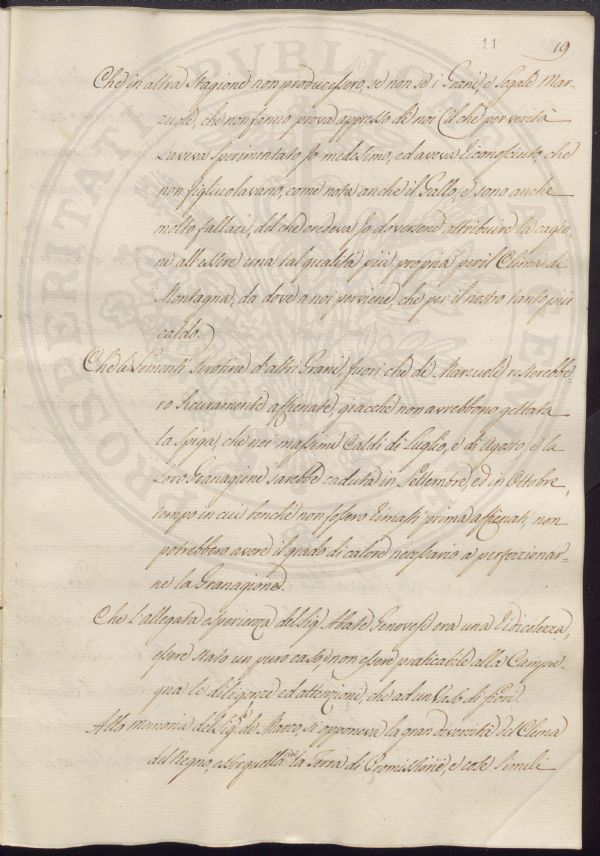 11 19
Che in altra Stagione non producessero, se non se i Grani, e Segale Mar-
zuole, che non fanno prova appresso di noi (il che per verità
l'aveva sperimentato Io medesimo, ed aveva riconosciuto, che
non figliuolavano, come nota anche il Gallo, e sono anche
molto fallaci, del che credeva Io doversene attribuire la cagio-
ne all'essere una tal qualità più propria peril Clima di
Montagna, da dove a noi perviene, che per il nostro tanto più
caldo.)
Che le Sementi Serotine d'altri Grani, fuori che de' Marzuoli resterebbe-
ro sicuramente affienate, giacchè non avrebbono gettata
la spiga, che nei massimi Caldi di Luglio, e di Agosto, e la
loro Granagione sarebbe caduta in Settembre, ed in Ottobre,
tempo in cui benchè non fossero rimasti prima affienati non
potrebbero avere il grado di calore necessario a perfezionar-
ne la Granagione.
Che l'allegata esperienza del Sig.r Abate Genovesi era una ridicolezza,
essere stato un puro caso, e non essere praticabile alla Campa-
gna le diligenze ed attenzione, che ad un Vaso di fiori.
Alla memoria del Sig.r de Marco, si opponeva la gran diversità del Clima
del Regno, esser quella la Terra di Promissione, e cose simili
PROSPERITATI PUBLICAE